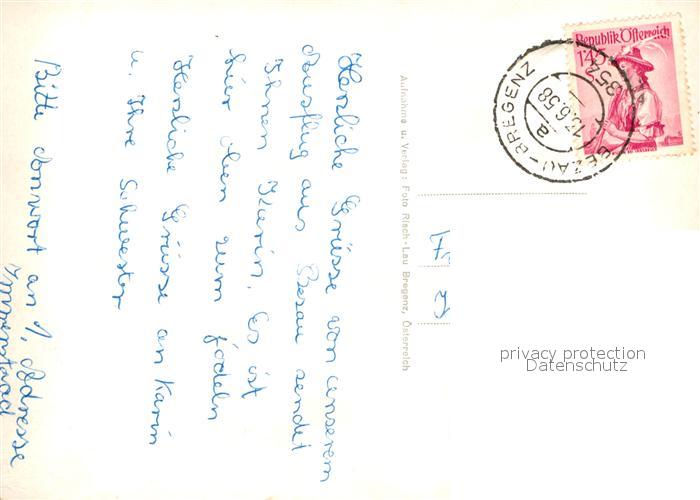 Herzliche Grüsse von unserem
Ausflug aus Bezau sendet
Ihnen Karin. Es ist
hier oben zum jodeln
Herzliche Grüsse an Karin
u. Ihre Schwester
Bitte Antwort an Adresse
Immenstaad
Aufnahme u. Verlag: Foto Risch-Lau Bregenz, Österreich
Republik Österreich
1'45
BEZAU-BREGENZ
13.6.58
a
privacy protection
Datenschutz